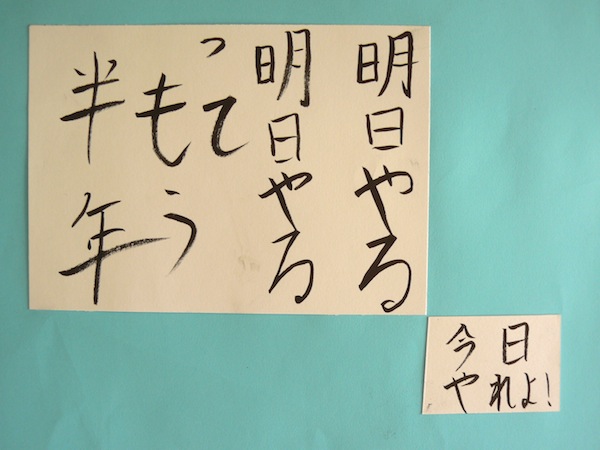 明日やる
明日やる
って
もう
半年
今日
やれよ!